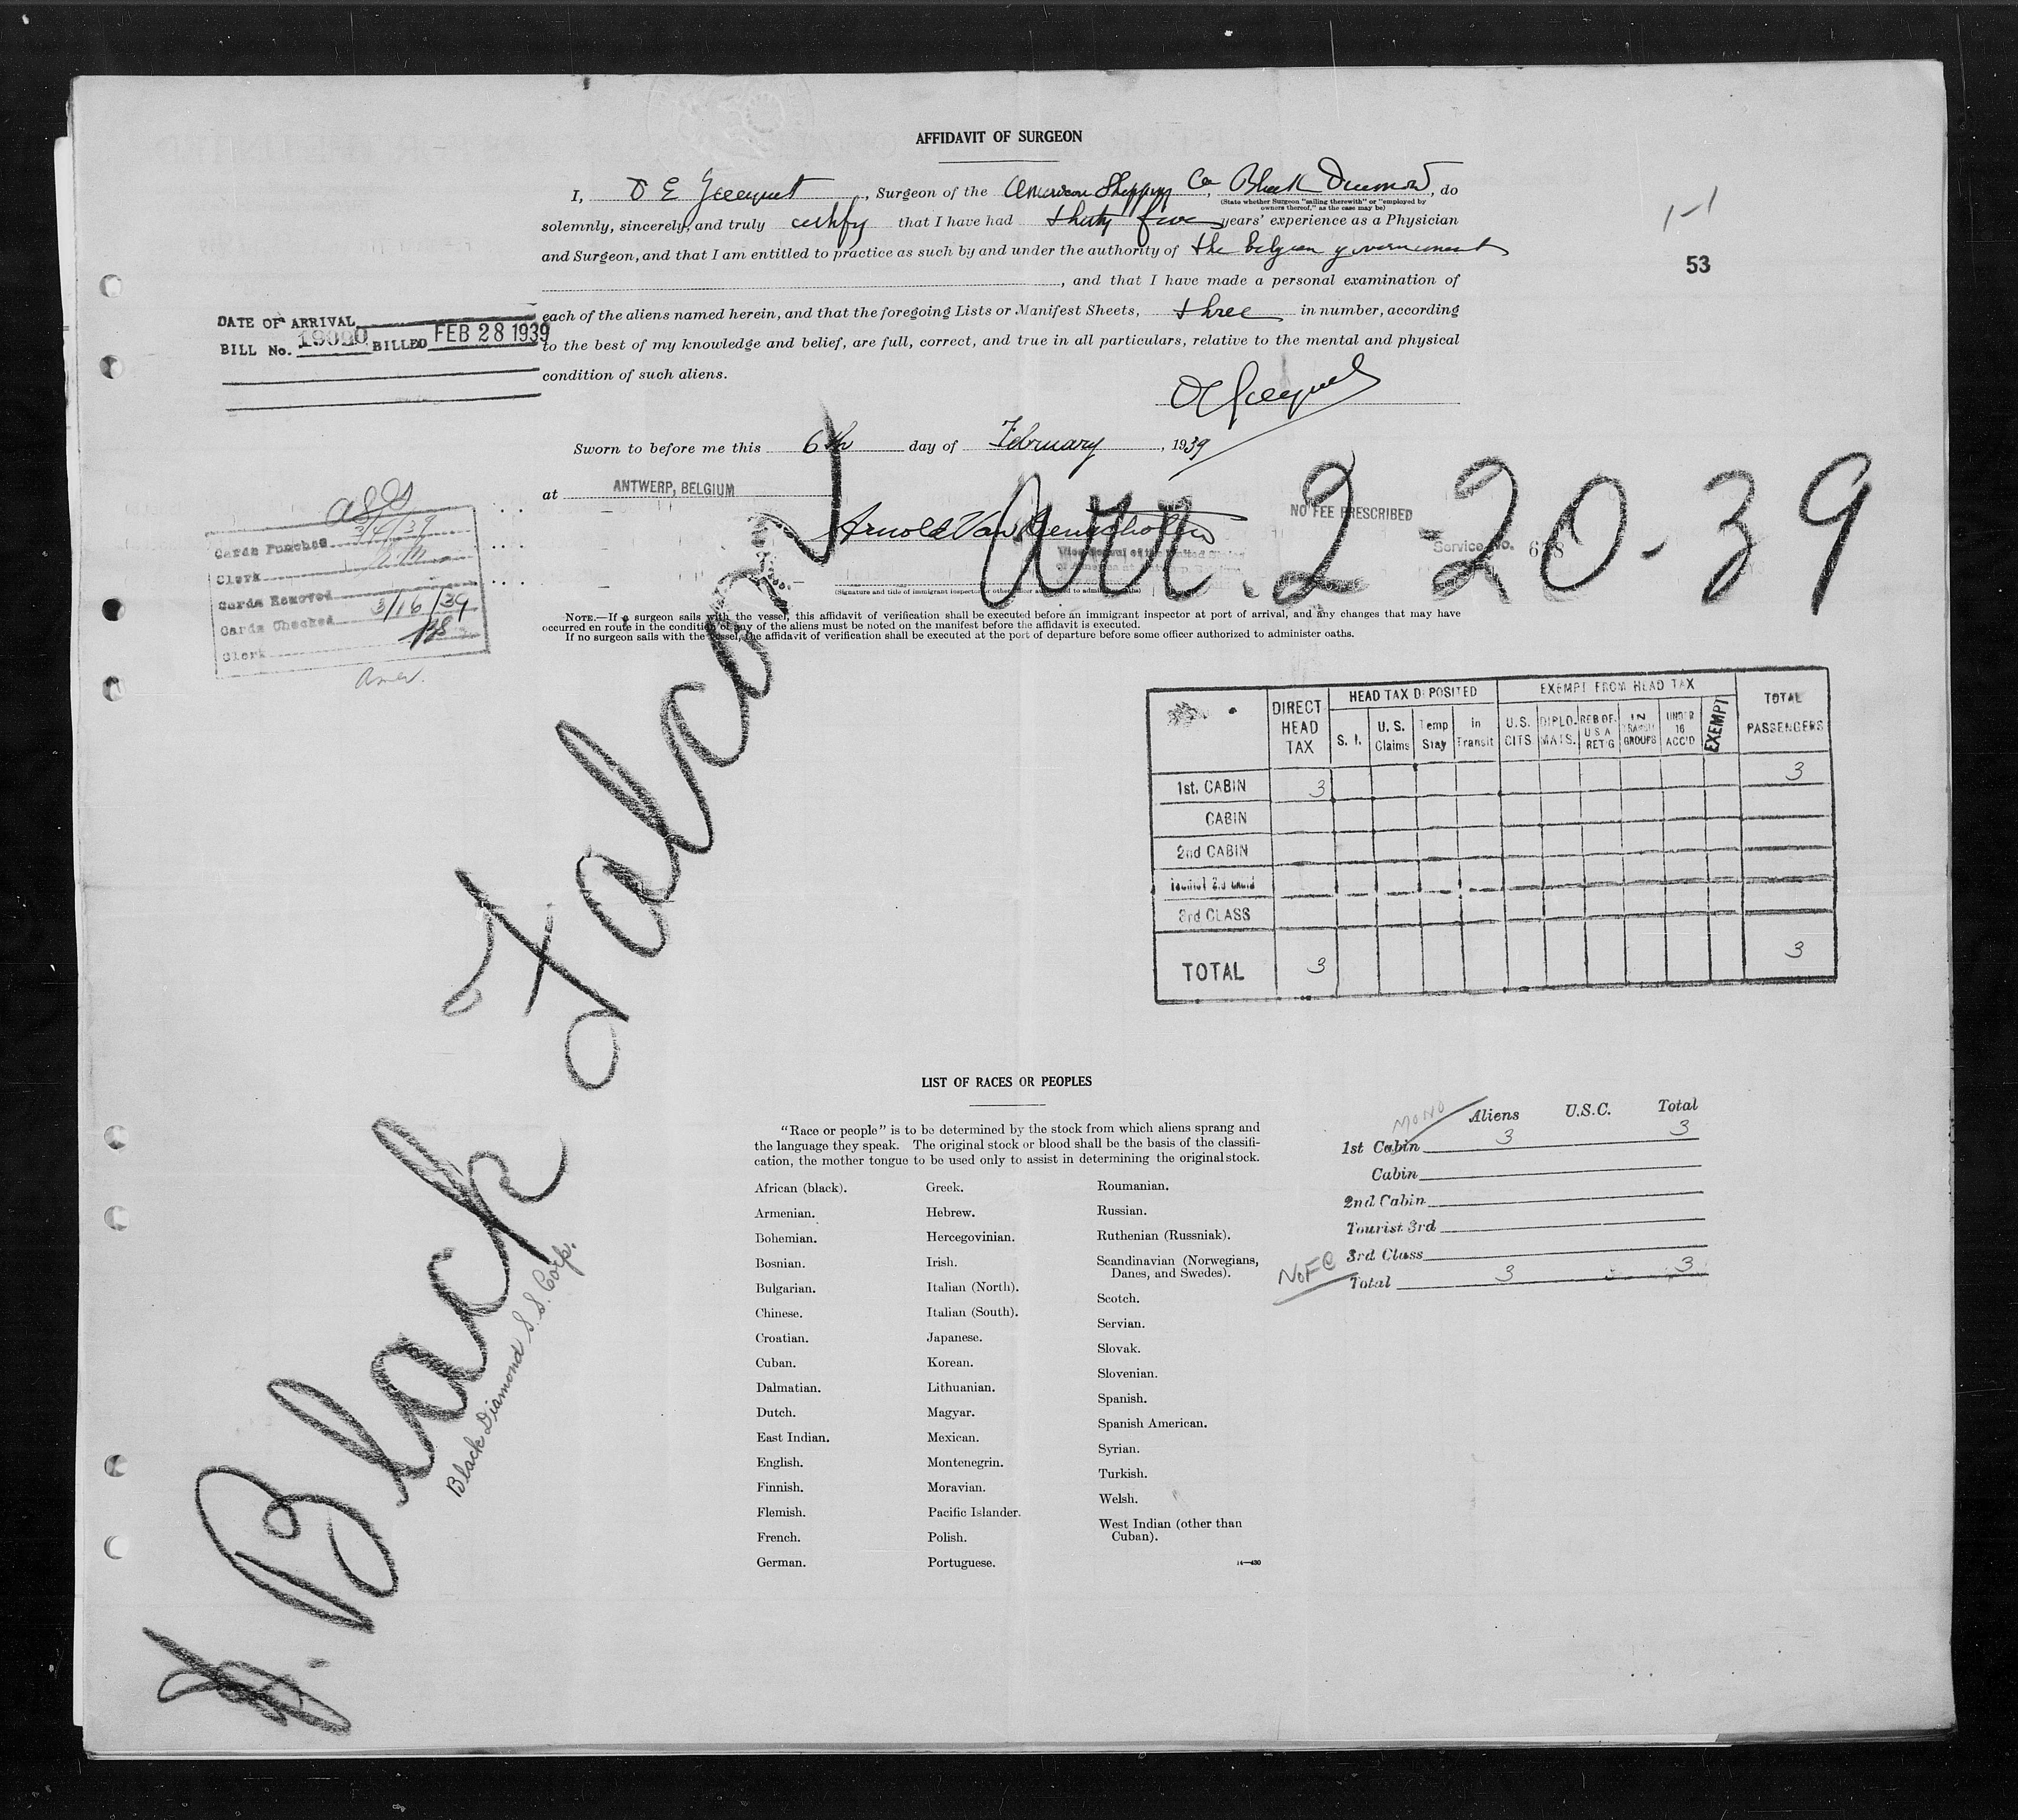 AFFIDAVIT OF SURGEON
I, D E , Surgeon of the American Shipping Co, Black Diamond, do
(State whether Surgeon "sailing therewith" or "employed by
owners thereof," as the case may be)
solemnly, sincerely, and truly certify that I have had thirty five years' experience as a Physician
and Surgeon, and that I am entitled to practice as such by and under the authority of the Belgian government
, and that I have made a personal examination of
each of the aliens named herein, and that the foregoing Lists or Manifest Sheets, three in number, according
to the best of my knowledge and belief, are full, correct, and true in all particulars, relative to the mental and physical
condition of such aliens.
1-1
53
DATE OF ARRIVAL
BILL No. 19090 BILLED FEB 28 1939
Sworn to before me this 6th day of February, 1939
at ANTWERP, BELGIUM
Arnold Van
Vice Consul of the United States
NO FEE PRESCRIBED
Service No. 678
Arr. 2-20-39
(Signature and title of immigrant inspector or other officer authorized to administer oaths)
NOTE.—If a surgeon sails with the vessel, this affidavit of verification shall be executed before an immigrant inspector at port of arrival, and any changes that may have
occurred en route in the condition of any of the aliens must be noted on the manifest before the affidavit is executed.
If no surgeon sails with the vessel, the affidavit of verification shall be executed at the port of departure before some officer authorized to administer oaths.
Cards Punched 3/4/39
Clerk
Cards Removed
Cards Checked 3/16/39
Clerk
Amer.
Black Falcon
Black Diamond S.S. Corp.
DIRECT HEAD TAX HEAD TAX DEPOSITED EXEMPT FROM HEAD TAX TOTAL PASSENGERS
S. I. U.S. Claims Temp Stay in Transit U.S. CITS DIPLO-MATS. RES OF U S A RET'G IN TRANSIT GROUPS UNDER 16 ACC'D EXEMPT
1st. CABIN 3 3
CABIN
2nd CABIN
Tourist 3rd CABIN
3rd CLASS
TOTAL 3 3
LIST OF RACES OR PEOPLES
"Race or people" is to be determined by the stock from which aliens sprang and
the language they speak. The original stock or blood shall be the basis of the classifi-
cation, the mother tongue to be used only to assist in determining the original stock.
African (black).
Armenian.
Bohemian.
Bosnian.
Bulgarian.
Chinese.
Croatian.
Cuban.
Dalmatian.
Dutch.
East Indian.
English.
Finnish.
Flemish.
French.
German.
Greek.
Hebrew.
Hercegovinian.
Irish.
Italian (North).
Italian (South).
Japanese.
Korean.
Lithuanian.
Magyar.
Mexican.
Montenegrin.
Moravian.
Pacific Islander.
Polish.
Portuguese.
Roumanian.
Russian.
Ruthenian (Russniak).
Scandinavian (Norwegians,
Danes, and Swedes).
Scotch.
Servian.
Slovak.
Slovenian.
Spanish.
Spanish American.
Syrian.
Turkish.
Welsh.
West Indian (other than
Cuban).
14—430
MONO
Aliens U.S.C. Total
1st Cabin 3 3
Cabin
2nd Cabin
Tourist 3rd
3rd Class
NOFC
Total 3 3